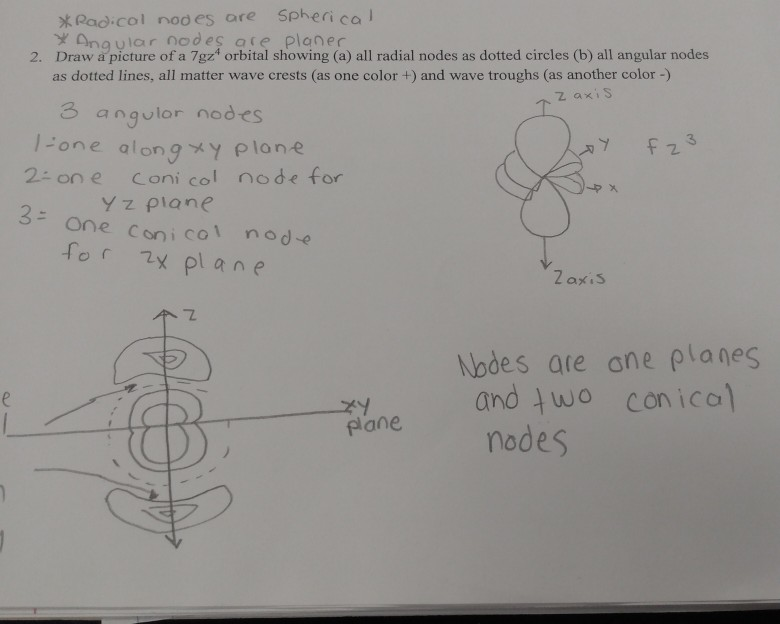 *Radical nodes are spherical
* Angular nodes are planer
2. Draw a picture of a 7gz⁴ orbital showing (a) all radial nodes as dotted circles (b) all angular nodes
as dotted lines, all matter wave crests (as one color +) and wave troughs (as another color -)
3 angular nodes
1=one along xy plane
2=one conical node for
yz plane
3= one conical node
for zx plane
z axis
y
fz³
x
z axis
z
xy
plane
e
Nodes are one planes
and two conical
nodes